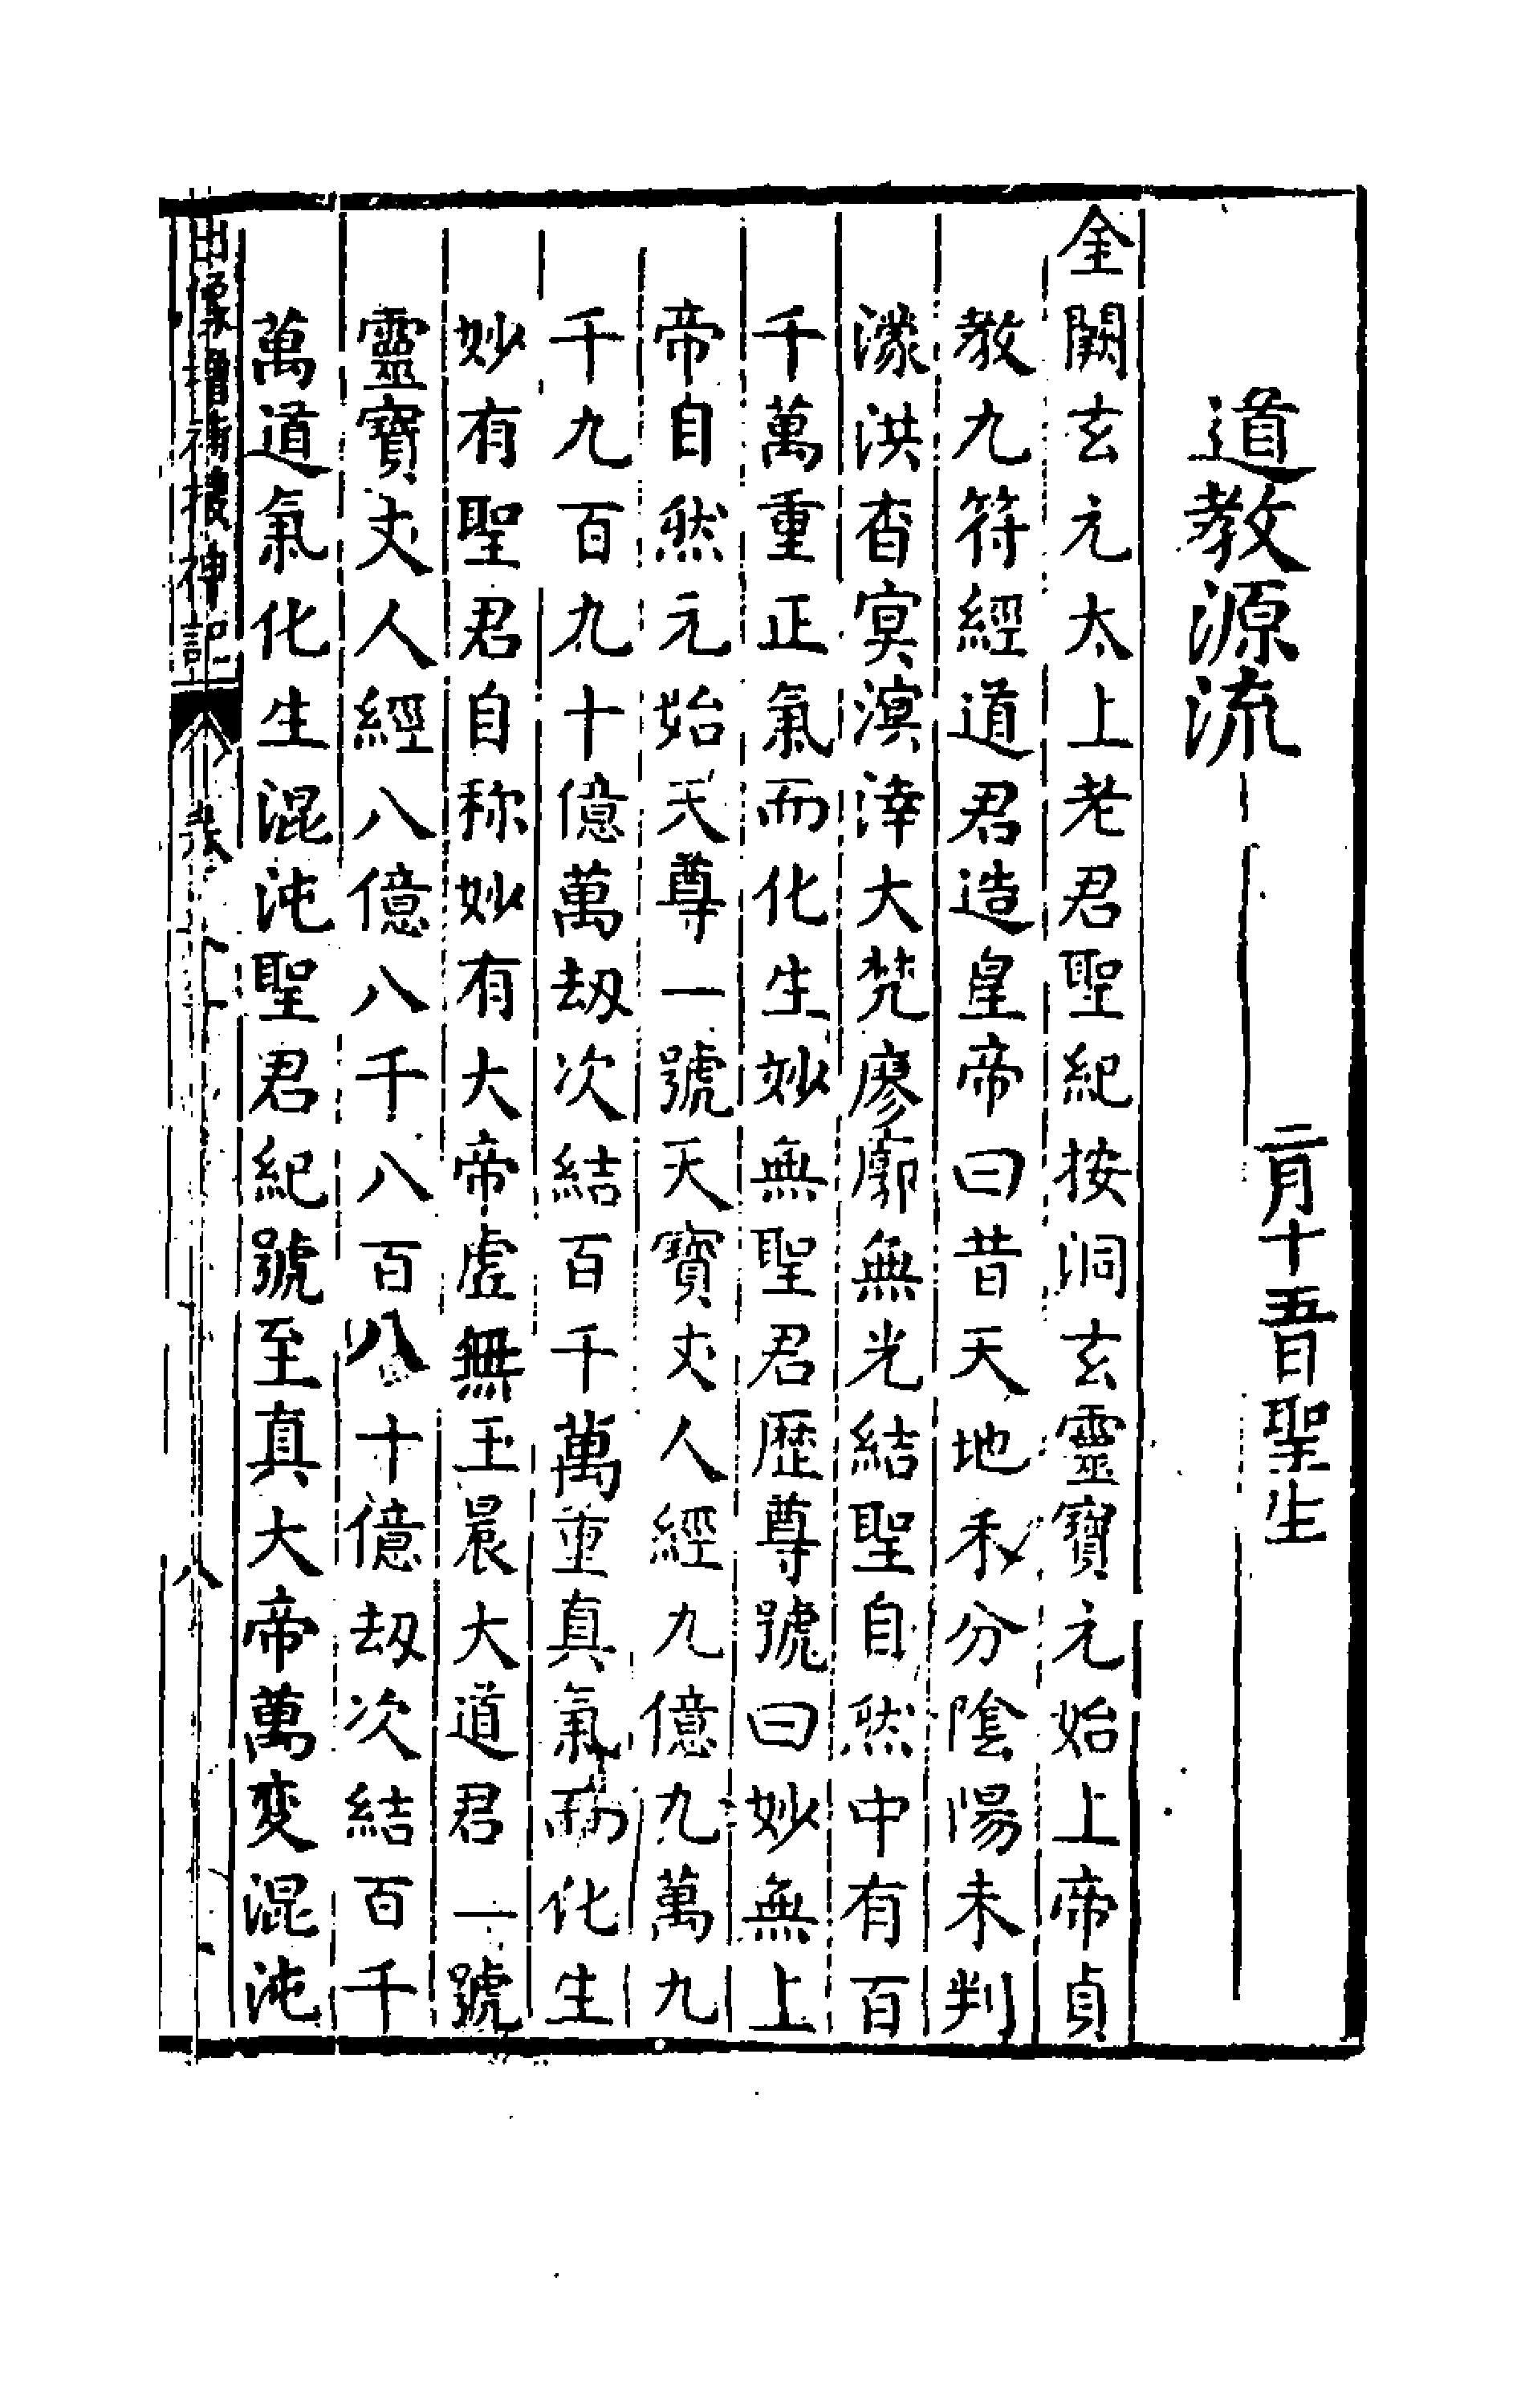 道教源流 二月十五日聖生
金闕玄元太上老君聖紀按洞玄靈寶元始上帝貞
教九符經道君造皇帝曰昔天地未分陰陽未判
濛洪杳冥溟涬大梵廖廓無光結聖自然中有百
千萬重正氣而化生妙無聖君歷尊號曰妙無上
帝自然元始天尊一號天寶丈人經九億九萬九
千九百九十億萬劫次結百千萬重真氣而化生
妙有聖君自称妙有大帝虚無玉晨大道君一號
靈寶丈人經八億八千八百八十億劫次結百千
萬道氣化生混沌聖君紀號至真大帝萬变混沌
出像增補搜神記 卷 八